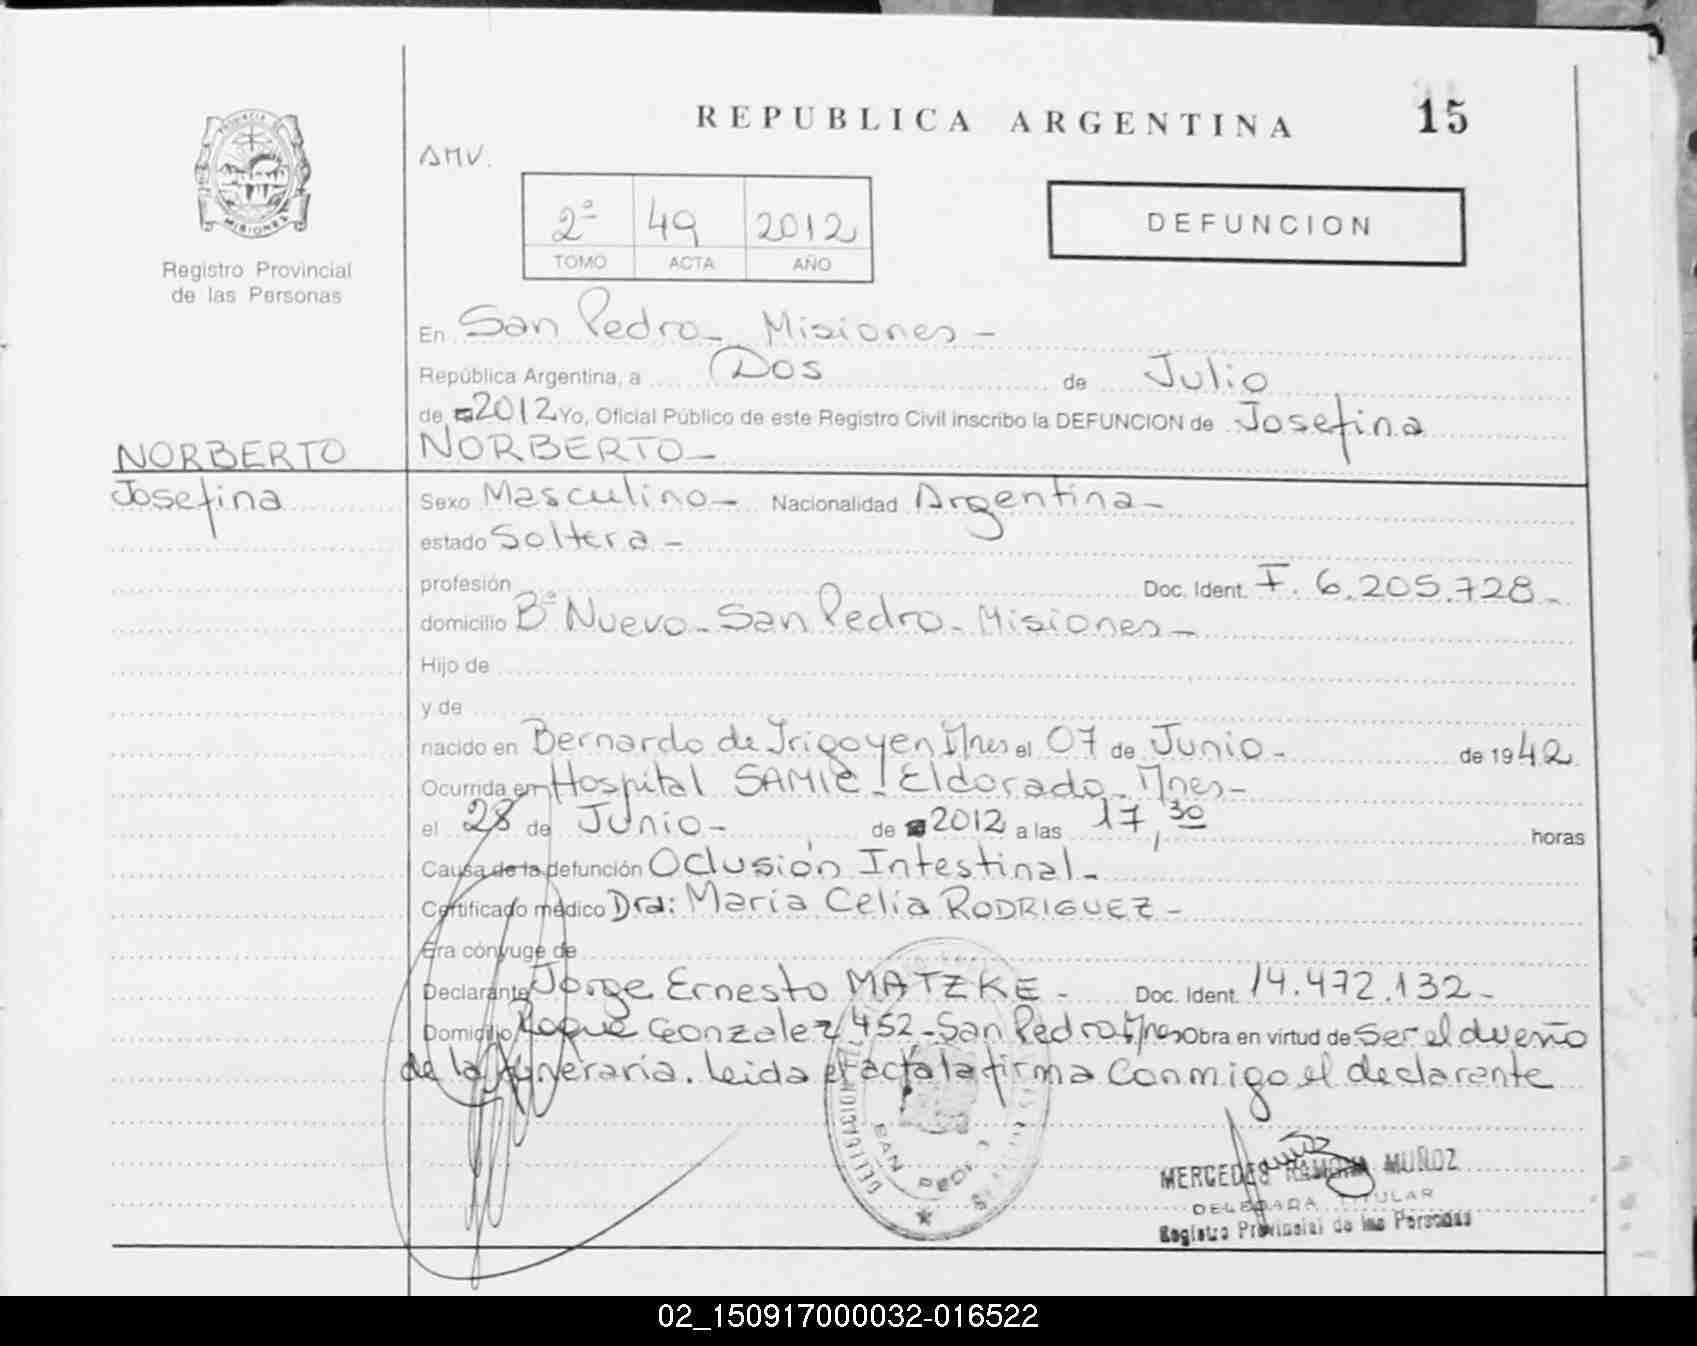 REPUBLICA ARGENTINA 15
PROVINCIA DE
MISIONES
AMV.
2º 49 2012
TOMO ACTA AÑO
DEFUNCION
Registro Provincial
de las Personas
En San Pedro - Misiones -
República Argentina, a Dos de Julio
de 2012 Yo, Oficial Público de este Registro Civil inscribo la DEFUNCION de Josefina
NORBERTO NORBERTO -
Josefina Sexo Masculino - Nacionalidad Argentina -
estado Soltera -
profesión Doc. Ident. F. 6.205.728 -
domicilio Bº Nuevo - San Pedro - Misiones -
Hijo de
y de
nacido en Bernardo de Irigoyen Mnes el 07 de Junio - de 1942
Ocurrida en Hospital SAMIC - Eldorado - Mnes -
el 28 de Junio - de 2012 a las 17,30 horas
Causa de la defunción Oclusión Intestinal -
Certificado médico Dra: María Celia RODRIGUEZ -
Era cónyuge de
Declarante Jorge Ernesto MATZKE - Doc. Ident. 14.472.132 -
Domicilio Roque Gonzalez 452 - San Pedro Mnes Obra en virtud de Ser el dueño
de la funeraria. Leida el acta la firma Conmigo el declarante
SAN PEDRO
MERCEDES RAMONA MUÑOZ
DELEGADA TITULAR
Registro Provincial de las Personas
02_150917000032-016522